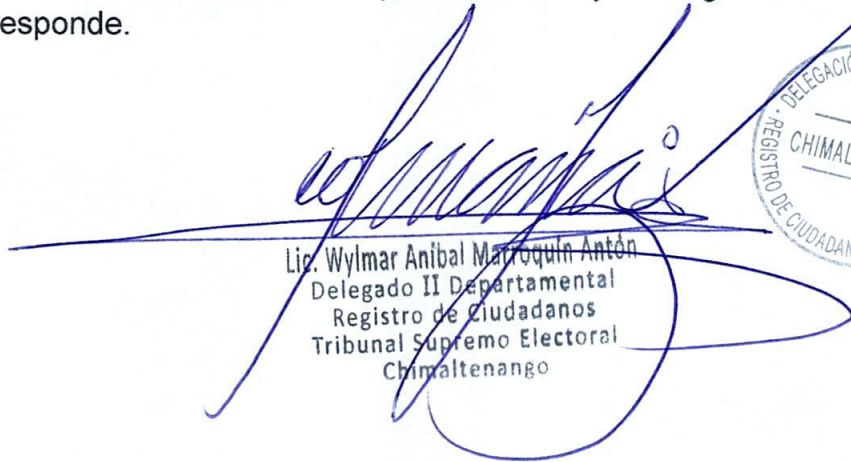 esponde.
Lic. Wylmar Aníbal Marroquín Antón
Delegado II Departamental
Registro de Ciudadanos
Tribunal Supremo Electoral
Chimaltenango
DELEGACIÓ
CHIMAL
REGISTRO DE CIUDADAN